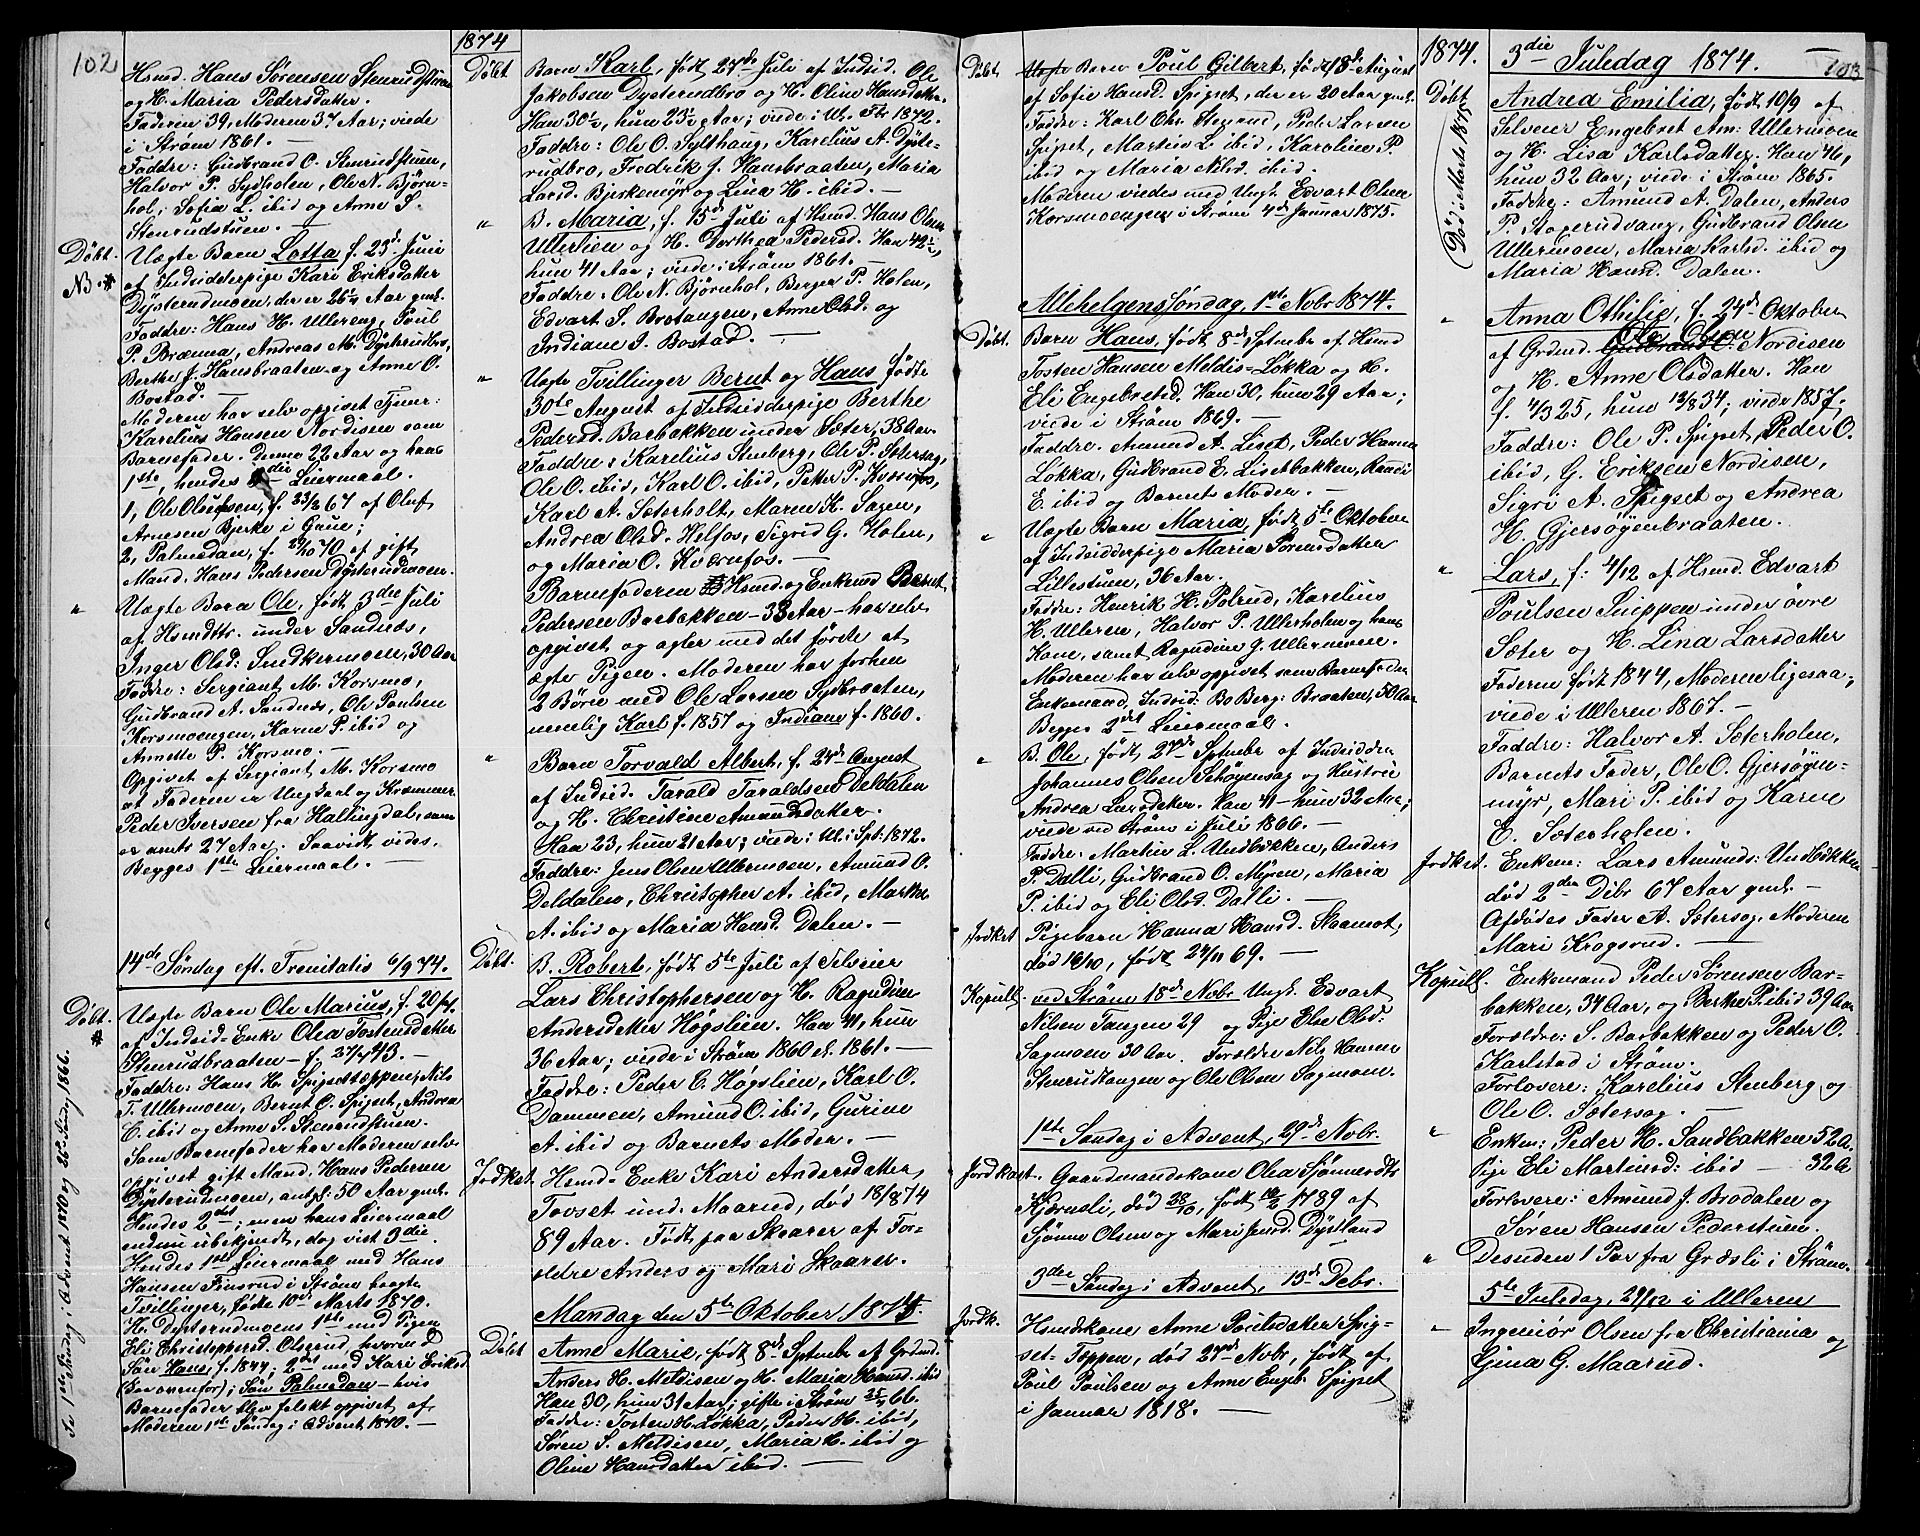 102
1874
Hsmd. Hans Sørensen Stenrudstuen
og H. Maria Pedersdatter.
Faderen 39, Moderen 37 Aar; viede
i Strøm 1861. —
Faddre: Gudbrand O. Stenrudstuen,
Halvor P. Sydholen, Ole N. Bjørn-
hol; Sofia L. ibid og Anne S.
Stenrudstuen. —
Døbt. Uægte Barn Lotta f. 23d Juni
NB. af Indsidderpige Kari Eriksdatter
Dysterudmoen, der er 26½ Aar gml.
Faddre: Hans H. Ullereng, Poul
P. Brænna, Andreas M. Dysterudbro,
Berthe J. Hansbraaten og Anne O.
Bostad.
Moderen har selv opgivet Tjener:
Karelius Hansen Nordisen som
Barnefader. Denne 22 Aar og hans
1ste, hendes die Leiermaal.
1, Ole Olufsen, f. 23/2 67 af Oluf
Arnesen Bjerke i Gaue;
2, Palmedan, f. 29/10 70 af gift
Mand. Hans Pedersen Dysterudmoen.
" Uægte Barn Ole, født 3die Juli
af Hsmdttr. under Sandnæs,
Inger Olsd: Snekkermoen, 30 Aar
Faddre: Sergiant M. Korsmo,
Gudbrand A. Sandnæs, Ole Poulsen
Korsmoengen, Karen P. ibid og
Annette P. Korsmo. —
Opgivet af Sergiant M. Korsmo
at Faderen er Ungkarl og
Peder Iversen fra Hallingdal, som
er omts 27 Aar. Saavidt vides,
Begges 1ste Leiermaal. —
14de Søndag eft. Trenitatis 6/9 74.
Døbt. Uægte Barn Ole Marius, f. 20/4
af Indsid-Enke Olea Tostensdatter
Stenrudbraaten — f. 27/4 43. —
Faddre: Hans H. Spigsettoppen, Nils
T. Ullermoen, Bernt O. Spigset, Andrea
C. ibid og Anne S. Stenrudstuen.
Som Barnefader har Moderen selv
opgivet gift Mand. Hans Pedersen
Dysterudmoen, antgl. 50 Aar gml.
Hendes 2det; men hans Leiermaal
endnu ubekjendt, dog vist 3die.
Hendes 1ste Leiermaal med Hans
Hansen Finsrud i Strøm bragte
Tvillinger, fødte 10de Marts 1870.
H. Dysterudmoens 1ste med Pigen
Eli Christophersd. Olsrud, hvorved
Søn Hans, f. 1844; 2det med Kari Eriksd.
(See ovenfor); Søn Palmedan — hvis
Barnefader blev falskt opgivet af
Moderen 1ste Søndag i Advent 1870. —
Se 1ste Søndag i Advent 1870 og 26de Søndag 1866.
Døbt Barn Karl, født 27de Juli af Indsid. Ole
Jakobsen Dysterudbro og H. Oline Hansdatter.
Han 30½, hun 23½ Aar; viede i Ul. Fbr 1872.
Faddre: Ole O. Sylthaug, Karelius A. Dyste-
rudbro, Fredrik J. Hansbraaten, Maria
Larsd. Bjerkemyr og Lina H. ibid. —
" B. Maria, f. 15de Juli af Hsmd. Hans Olsen
Ullerlien og H. Dorthea Pedersd. Han 42½,
hun 41 Aar; viede i Strøm 1861. —
Faddre: Ole N. Bjørnhol, Berger P. Holen,
Edvart S. Brotangen, Anne Olsd. og
Indiane J. Bostad. —
" Uægte Tvillinger Bernt og Hans fødte
30te August af Indsidderpige Berthe
Pedersd. Barbakken under Sæter, 38 Aar.
Faddre: Karelius Stenberg, Ole P. Sætersag,
Ole O. ibid, Karl O. ibid, Petter P. Kværnfos,
Karl A. Sæterholt, Maren K. Sagen,
Andrea Olsd. Helfos, Sigrid G. Holen,
og Maria O. Kværnfos. —
Barnefaderen Hsmd. og Enkmd Bernt
Pedersen Barbakken — 33 Aar — har selv
opgivet og agter med det første at
ægte Pigen. Moderen har forhen
2 Børn med Ole Larsen Sydbraaten,
nemlig Karl f. 1857 og Indiane f. 1860.
" Barn Torvald Albert, f. 24de August
af Indsid. Tarald Taraldsen Deldalen
og H. Christine Amundsdatter.
Han 23, hun 21 Aar; viede i Ul. i Spt. 1872.
Faddre: Jens Olsen Ullermoen, Amund O.
Deldalen, Christopher A. ibid, Marthe
A. ibid og Maria Hansd. Dalen. —
Døbt. B. Robert, født 5te Juli af Selveier
Lars Christophersen og H. Ragndine
Andersdatter Høgslien. Han 41, hun
36 Aar; viede i Strøm 1860 el. 1861. —
Faddre: Peder C. Høgslien, Karl O.
Dammen, Amund O. ibid, Gurine
A. ibid og Barnets Moder. —
Jordket. Hsmd-Enke Kari Andersdatter
Tovset und. Maarud, død 18/8 74
89 Aar. Født paa Skaarer af For-
ældre Anders og Mari Skaarer.
Mandag den 5te Oktober 1874.
Døbt Anne Marie, født 8de Sptmbr af Grdmd.
Anders H. Meldisen og H. Maria Hansd. ibid
Han 30, hun 31 Aar; gifte i Strøm 66.
Faddre: Tosten H. Løkka, Peder H. ibid,
Søren S. Meldisen, Maria H. ibid og
Oline Hansdatter ibid. —
Døbt. Uægte Barn Poul Gilbert, født 13de August
af Sofie Hansd. Spigset, der er 20 Aar gml.
Faddre: Karl Chr. Stenrud, Peder Larsen
Spigset, Martin L. ibid, Karoline P.
ibid og Maria Nilsd. ibid.
Moderen viedes med Ungk. Edvart Olsen
Korsmoengen i Strøm 4de Januar 1875.
Allehelgenssøndag, 1ste Nobr 1874.
Døbt. Barn Hans, født 8de Sptmbr af Hsmd
Tosten Hansen Meldis-Løkka og H.
Eli Engebretsd. Han 30, hun 29 Aar;
viede i Strøm 1869. —
Faddre. Amund A. Liset, Peder Hansen
Løkka, Gudbrand E. Lisetbakken, Randi
E. ibid og Barnets Moder. —
" Uægte Barn Maria, født 5te Oktober
af Indsidderpige Maria Sørensdatter
Lillestuen, 36 Aar.
Faddre: Henrik H. Polrud, Karelius
H. Ulleren, Halvor P. Ullerholen og hans
Kone, samt Ragndine G. Ullermoen.
Moderen har selv opgivet som Barnefader
Enkemand, Indsid. Bo Berg: Braaten, 50 Aar
Begges 2det Leiermaal.
" B. Ole, født 27de Sptmbr af Indsidder
Johannes Olsen Schøyensag og Hustru
Andrea Larsdatter. Han 41 — hun 32 Aar;
viede ved Strøm i Juli 1866. —
Faddre: Martin L. Undbakken, Anders
P. Dalli, Gudbrand O. Myren, Maria
P. ibid og Eli Olsd. Dalli. —
Jordket Pigebarn Hanna Hansd. Skaamot,
død 16/10, født 24/11 69. —
Kopull. ved Strøm 18de Nobr. Ungk. Edvart
Nilsen Tangen 29 og Pige Else Olsd:
Sagmoen 30 Aar. Forældre Nils Hansen
Stenrudtangen og Ole Olsen Sagmoen.
1ste Søndag i Advent, 29de Nobr.
Jordkast. Gaardmandskone Olea Sjønnesdtr
Kjørnsli, død 28/10, født 12/2 1789 af
Sjønne Olsen og Mari Jensd. Dystland
3die Søndag i Advent, 13de Debr.
Jordk. Hsmdskone Anne Poulsdatter Spig-
set-Toppen, død 27de Nobr, født af
Poul Poulsen og Anne Engb. Spigset
i Januar 1818. —
1874. 3die Juledag 1874. 103
Døbt Andrea Emilia, født 10/9 af
Død i Marts 1875
Selveier Engebret Am: Ullermoen
og H. Lisa Karlsdatter. Han 46,
hun 32 Aar; viede i Strøm 1865.
Faddre: Amund A. Dalen, Anders
P. Stagerudvang, Gudbrand Olsen
Ullermoen, Maria Karlsd. ibid og
Maria Hansd. Dalen.
" Anna Othilie, f. 24de Oktober
Ole Olsen
af Grdmd. Gudbrand O. Nordisen
og H. Anne Olsdatter. Han
f. 4/3 25, hun 12/8 34; viede 1857.
Faddre: Ole P. Spigset, Peder O.
ibid, G. Eriksen Nordisen,
Sigri A. Spigset og Andrea
H. Gjersøyenbraaten.
" Lars, f: 4/12 af Hsmd. Edvart
Poulsen Snippen under øvre
Sæter og H. Lina Larsdatter
Faderen født 1844, Moderen ligesaa;
viede i Ulleren 1867. —
Faddre: Halvor A. Sæterholen,
Barnets Fader, Ole O. Gjersøyen-
myr, Mari P. ibid og Karen
E. Sæterholen.
Jordket. Enkem: Lars Amunds: Undbakken
død 2den Debr 67 Aar gml. —
Afdødes Fader A. Sætersag. Moderen
Mari Krogsrud. —
Kopull. Enkemand Peder Sørensen Bar-
bakken, 34 Aar, og Berthe P. ibid 39 Aar
Forældre: S. Barbakken og Peder O.
Karlstad i Strøm.
Forlovere: Karelius Stenberg og
Ole O. Sætersag. —
" Enkem: Peder H. Sandbakken 52 A.
Pige Eli Martinsd: ibid 32 A
Forlovere: Amund J. Brodalen og
Søren Hansen Pederstuen.
" Desuden 1 Par fra Græsli i Strøm.
5te Juledag, 29/12 i Ulleren
" Ingeniør Olsen fra Christiania og
Gina G. Maarud.